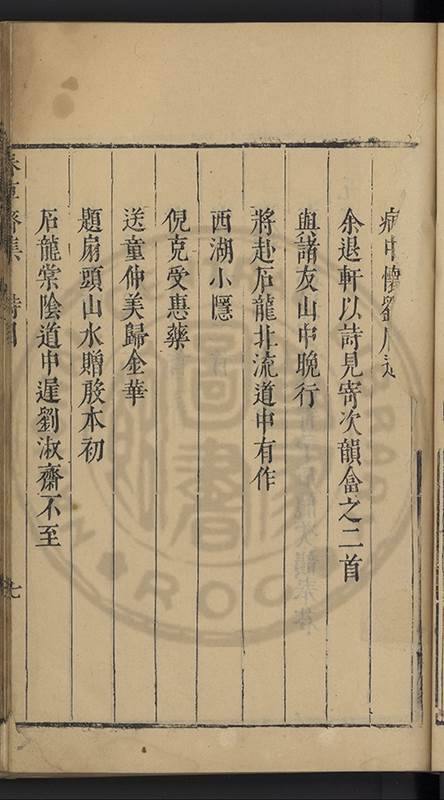 病中懷劉
余退軒以詩見寄次韻畣之二首
與諸友山中晚行
將赴石龍北流道中有作
西湖小隱
倪克受惠藥
送童仲美歸金華
題扇頭山水贈殷本初
石龍棠陰道中遲劉淑齋不至
七